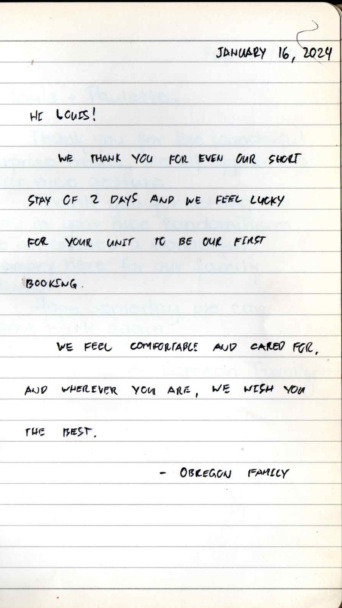 JANUARY 16, 2024
HI LOUIS!
WE THANK YOU FOR EVEN OUR SHORT
STAY OF 2 DAYS AND WE FEEL LUCKY
FOR YOUR UNIT TO BE OUR FIRST
BOOKING.
WE FEEL COMFORTABLE AND CARED FOR,
AND WHEREVER YOU ARE, WE WISH YOU
THE BEST.
- OBREGON FAMILY